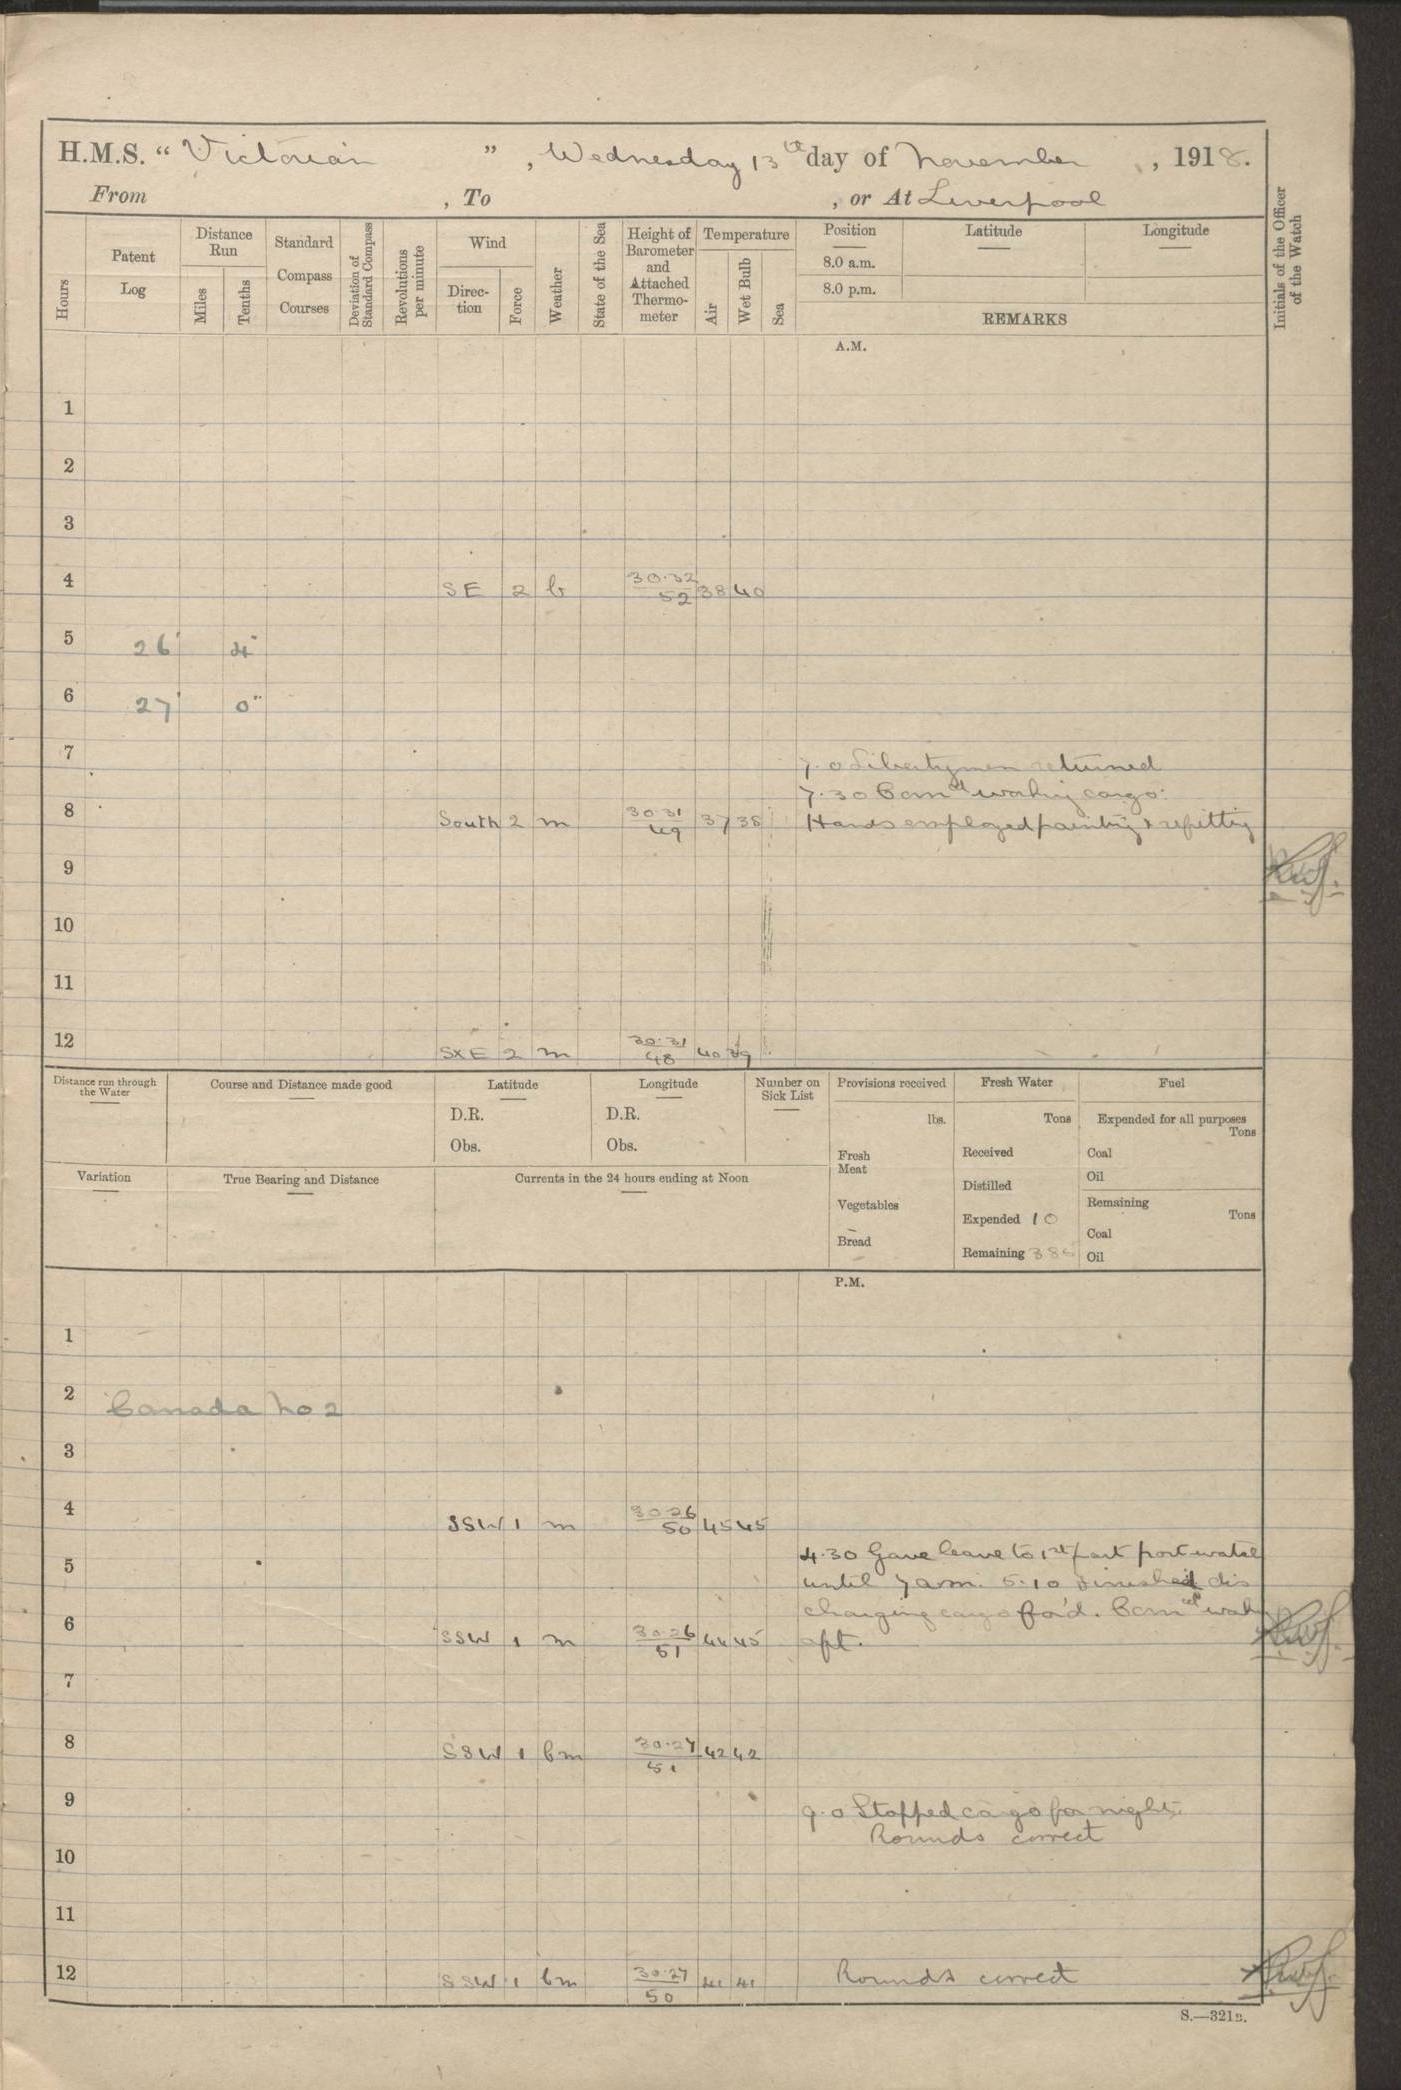 H.M.S. “ Victorian ” , Wednesday 13th day of November , 1918.
From , To , or At Liverpool
Hours
Patent Log
Distance Run
Miles
Tenths
Standard Compass Courses
Deviation of Standard Compass
Revolutions per minute
Wind
Direc-tion
Force
Weather
State of the Sea
Height of Barometer and Attached Thermo-meter
Temperature
Air
Wet Bulb
Sea
Position
8.0 a.m.
8.0 p.m.
Latitude
Longitude
REMARKS
Initials of the Officer of the Watch
A.M.
1
2
3
4 SE 2 b 30.32 52 38 40
5 26' 4"
6 27' 0"
7
7.0 Libertymen returned
7.30 Comced working cargo.
8 South 2 m 30.31 49 37 38 Hands employed painting & refitting
9
10
11
12 SxE 2 m 30.31 48 40 39
Distance run through the Water
Course and Distance made good
Latitude
D.R.
Obs.
Longitude
D.R.
Obs.
Number on Sick List
Provisions received
lbs.
Fresh Meat
Vegetables
Bread
Fresh Water
Tons
Received
Distilled
Expended 10
Remaining 385
Fuel
Expended for all purposes
Tons
Coal
Oil
Remaining
Tons
Coal
Oil
Variation
True Bearing and Distance
Currents in the 24 hours ending at Noon
P.M.
1
2 Canada No 2
3
4 SSW 1 m 30.26 50 45 45
4.30 Gave leave to 1st part port watch
5 until 7 am. 5.10 Finished dis
charging cargo for'd. Comced
6 SSW 1 m 30.26 51 44 45 aft.
7
8 SSW 1 bm 30.27 51 42 42
9 9.0 Stopped cargo for night.
Rounds correct
10
11
12 SSW 1 bm 30.27 50 41 41 Rounds correct
S.—321B.